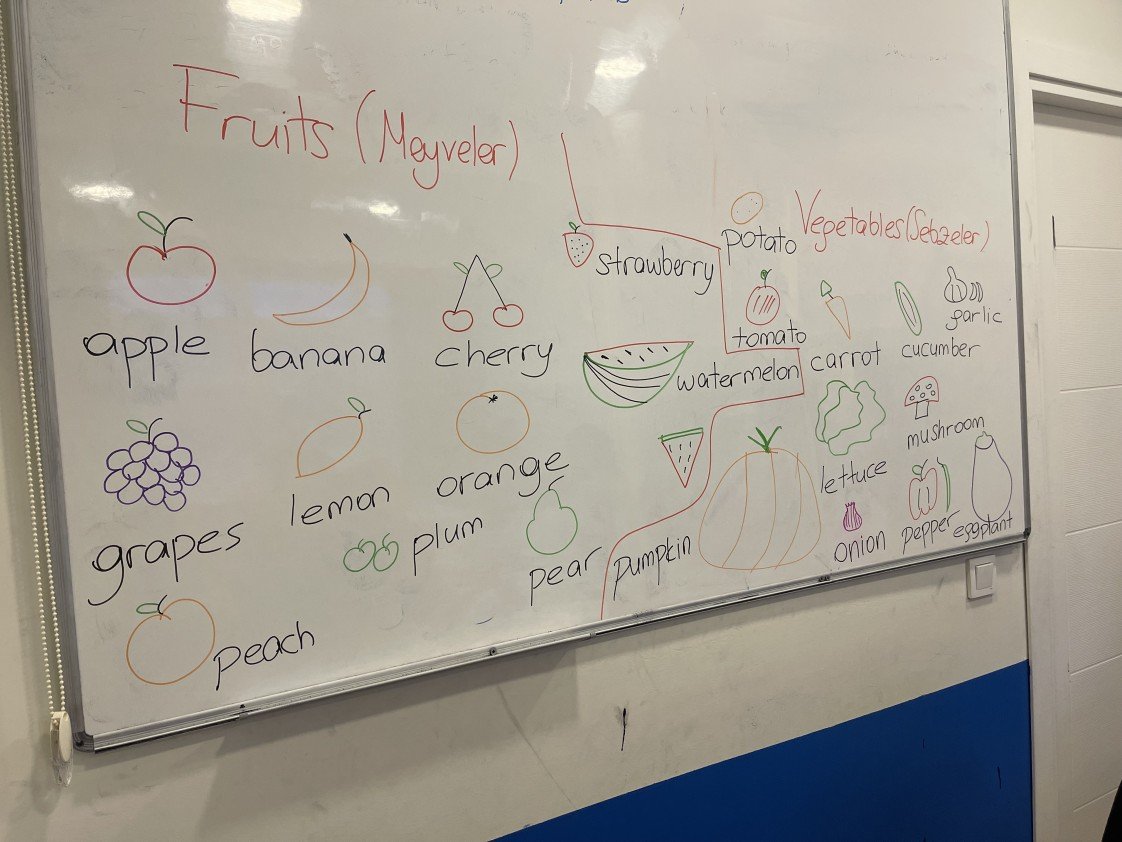 Fruits (Meyveler)
apple
banana
cherry
strawberry
watermelon
grapes
lemon
orange
plum
pear
peach
Vegetables (Sebzeler)
potato
tomato
carrot
cucumber
garlic
lettuce
mushroom
pumpkin
onion
pepper
eggplant